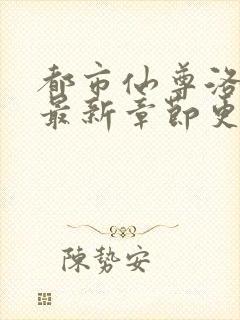 都市仙尊洛
最新章節更
陳勢安